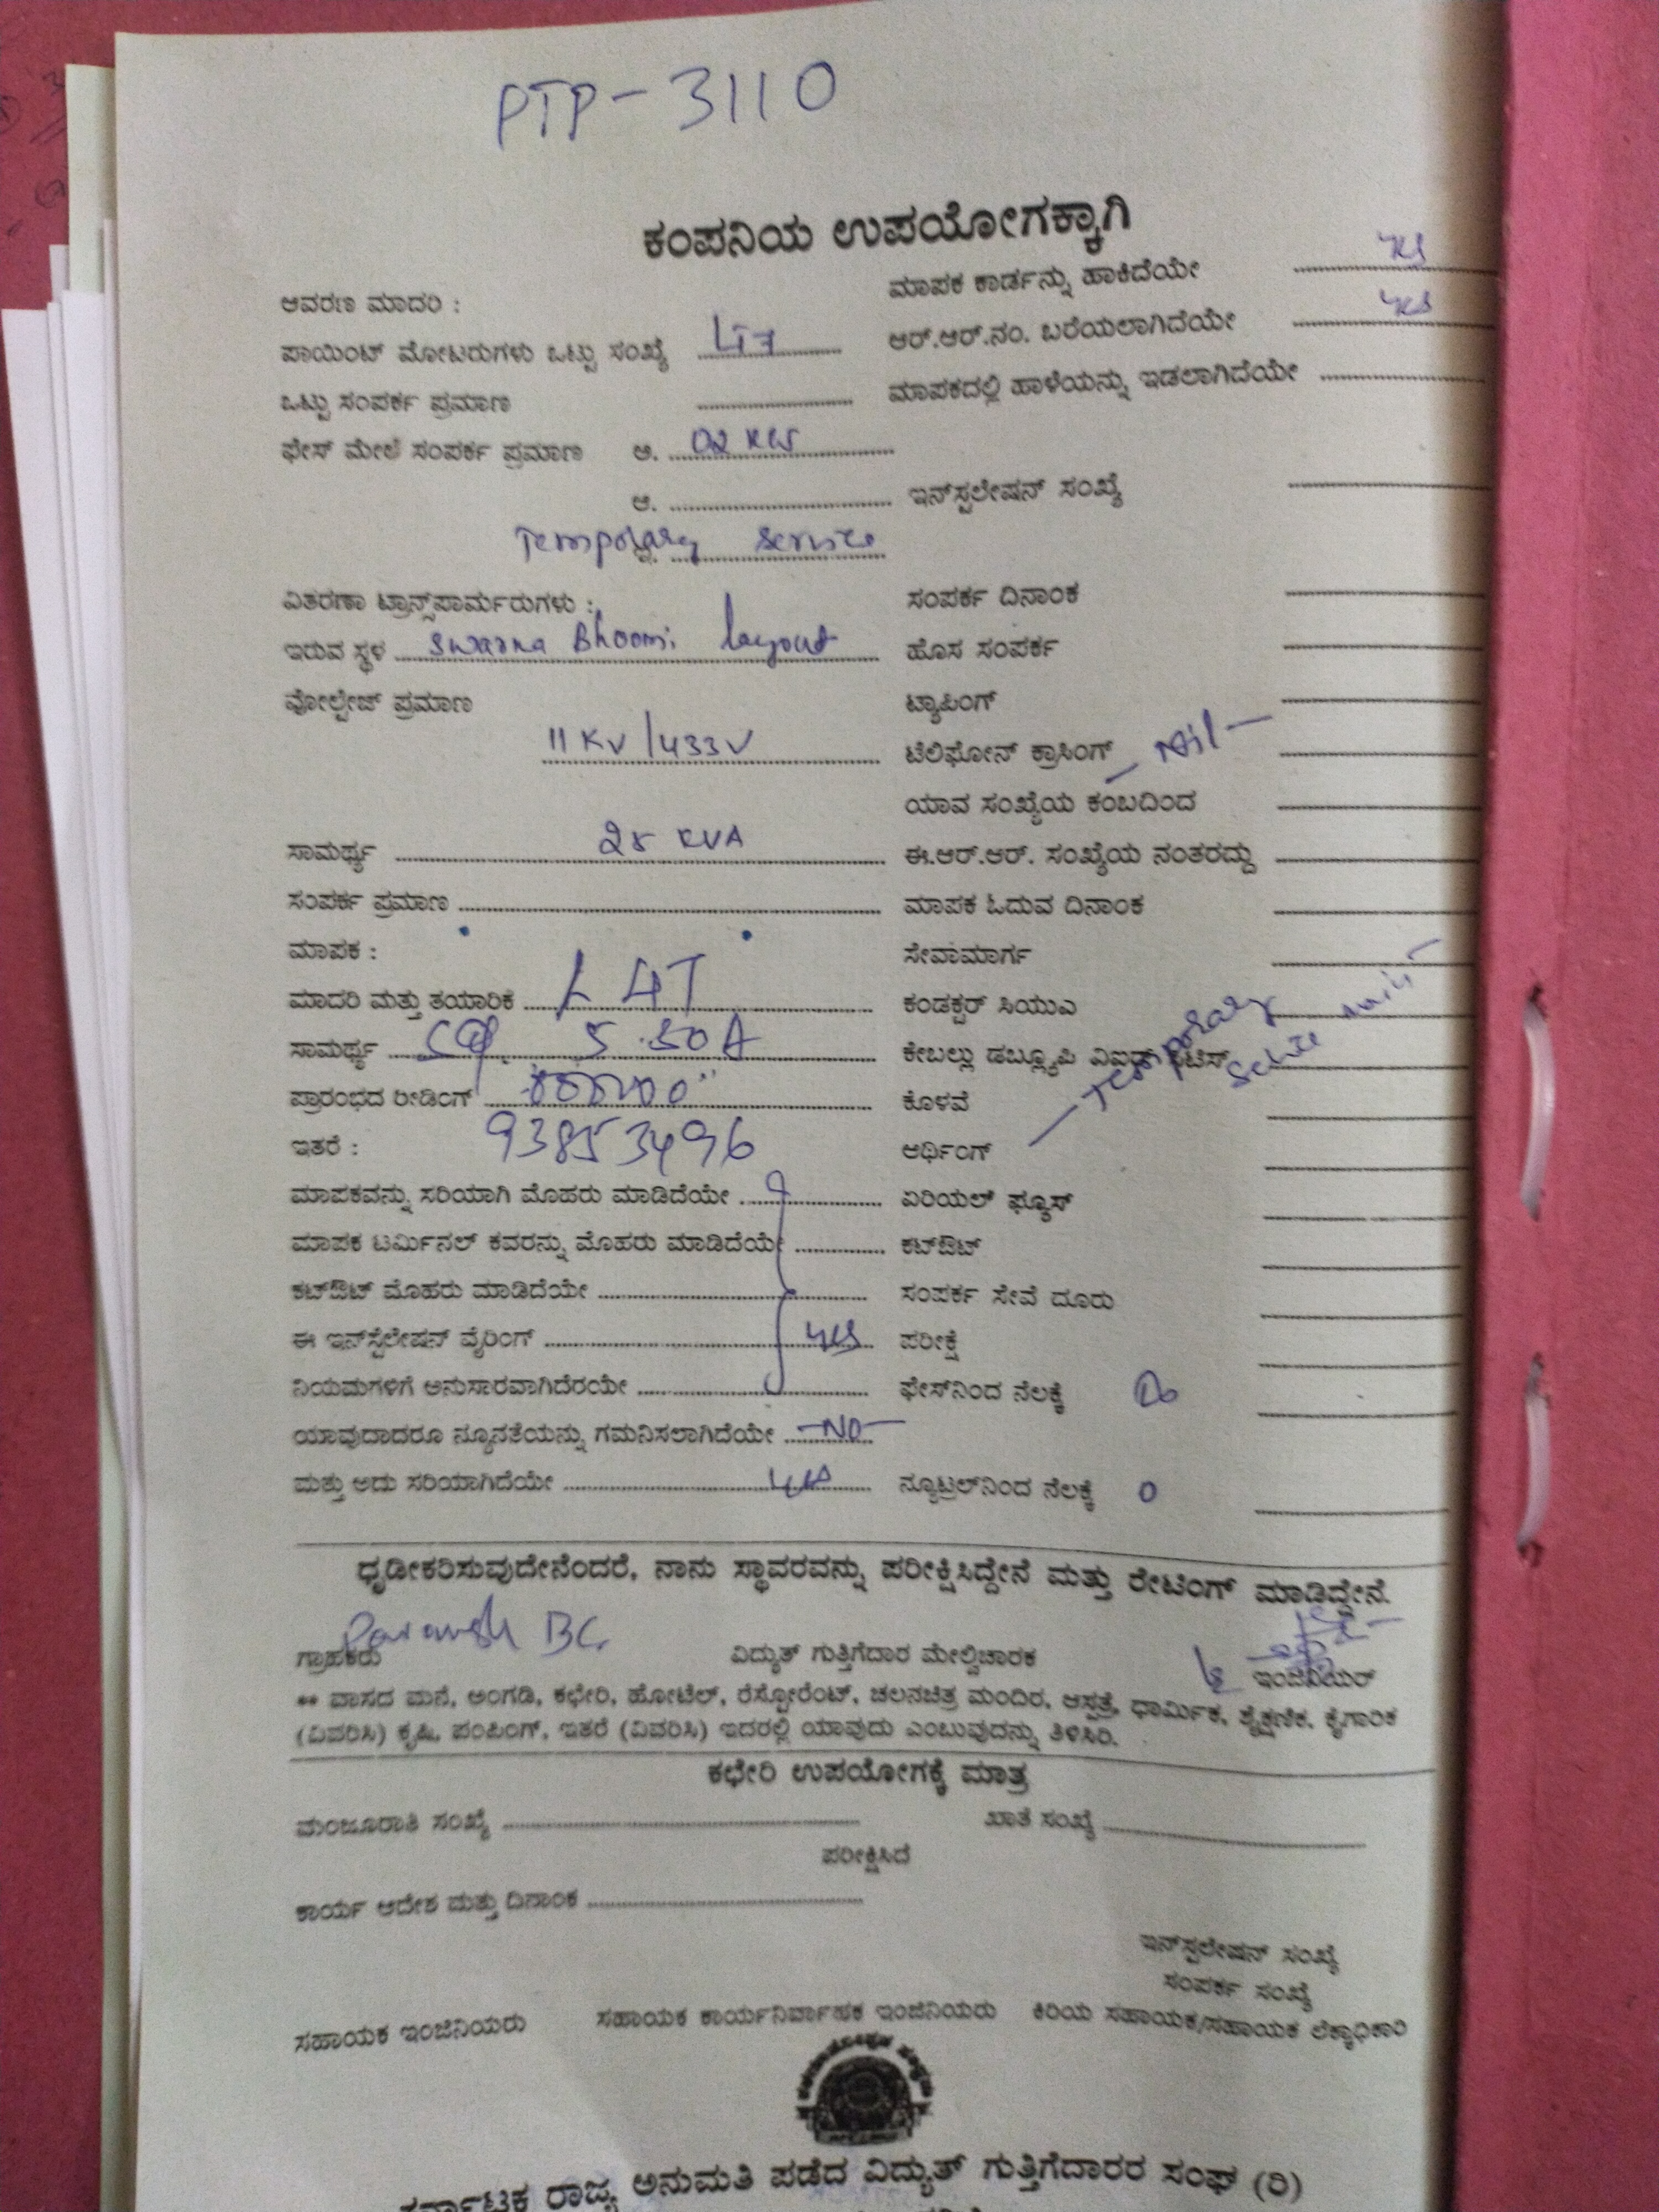 PTP-3110
ಕಂಪನಿಯ ಉಪಯೋಗಕ್ಕಾಗಿ
ಆವರಣ ಮಾದರಿ :
ಪಾಯಿಂಟ್ ಮೋಟರುಗಳು ಒಟ್ಟು ಸಂಖ್ಯೆ LT7
ಒಟ್ಟು ಸಂಪರ್ಕ ಪ್ರಮಾಣ
ಫೇಸ್ ಮೇಲೆ ಸಂಪರ್ಕ ಪ್ರಮಾಣ ಆ. 02 KW
ಆ.
Temporary Service
ವಿತರಣಾ ಟ್ರಾನ್ಸ್‌ಪಾರ್ಮರುಗಳು :
ಇರುವ ಸ್ಥಳ Swarna Bhoomi layout
ವೋಲ್ಟೇಜ್ ಪ್ರಮಾಣ
11 KV/433V
ಸಾಮರ್ಥ್ಯ 25 KVA
ಸಂಪರ್ಕ ಪ್ರಮಾಣ
ಮಾಪಕ :
ಮಾದರಿ ಮತ್ತು ತಯಾರಿಕೆ L&T
ಸಾಮರ್ಥ್ಯ 5-30A
ಪ್ರಾರಂಭದ ರೀಡಿಂಗ್
ಇತರೆ : 93853496
ಮಾಪಕವನ್ನು ಸರಿಯಾಗಿ ಮೊಹರು ಮಾಡಿದೆಯೇ
ಮಾಪಕ ಟರ್ಮಿನಲ್ ಕವರನ್ನು ಮೊಹರು ಮಾಡಿದೆಯೇ
ಕಟ್‌ಔಟ್ ಮೊಹರು ಮಾಡಿದೆಯೇ
ಈ ಇನ್‌ಸ್ಟಲೇಷನ್ ವೈರಿಂಗ್ yes
ನಿಯಮಗಳಿಗೆ ಅನುಸಾರವಾಗಿದೆರಯೇ
ಯಾವುದಾದರೂ ನ್ಯೂನತೆಯನ್ನು ಗಮನಿಸಲಾಗಿದೆಯೇ -NO-
ಮತ್ತು ಅದು ಸರಿಯಾಗಿದೆಯೇ yes
ಮಾಪಕ ಕಾರ್ಡನ್ನು ಹಾಕಿದೆಯೇ yes
ಆರ್.ಆರ್.ನಂ. ಬರೆಯಲಾಗಿದೆಯೇ yes
ಮಾಪಕದಲ್ಲಿ ಹಾಳೆಯನ್ನು ಇಡಲಾಗಿದೆಯೇ
ಇನ್‌ಸ್ಟಲೇಷನ್ ಸಂಖ್ಯೆ
ಸಂಪರ್ಕ ದಿನಾಂಕ
ಹೊಸ ಸಂಪರ್ಕ
ಟ್ಯಾಪಿಂಗ್
ಟೆಲಿಫೋನ್ ಕ್ರಾಸಿಂಗ್ - Nil -
ಯಾವ ಸಂಖ್ಯೆಯ ಕಂಬದಿಂದ
ಈ.ಆರ್.ಆರ್. ಸಂಖ್ಯೆಯ ನಂತರದ್ದು
ಮಾಪಕ ಓದುವ ದಿನಾಂಕ
ಸೇವಾಮಾರ್ಗ
ಕಂಡಕ್ಟರ್ ಸಿಯುಎ
ಕೇಬಲ್ಲು ಡಬ್ಲ್ಯೂಪಿ
ಕೊಳವೆ
- Temporary
ಆರ್ಥಿಂಗ್
ಏರಿಯಲ್ ಫ್ಯೂಸ್
ಕಟ್‌ಔಟ್
ಸಂಪರ್ಕ ಸೇವೆ ದೂರು
ಪರೀಕ್ಷೆ
ಫೇಸ್‌ನಿಂದ ನೆಲಕ್ಕೆ
ನ್ಯೂಟ್ರಲ್‌ನಿಂದ ನೆಲಕ್ಕೆ 0
ಧೃಡೀಕರಿಸುವುದೇನೆಂದರೆ, ನಾನು ಸ್ಥಾವರವನ್ನು ಪರೀಕ್ಷಿಸಿದ್ದೇನೆ ಮತ್ತು ರೇಟಿಂಗ್ ಮಾಡಿದ್ದೇನೆ.
ಗ್ರಾಹಕರು ವಿದ್ಯುತ್ ಗುತ್ತಿಗೆದಾರ ಮೇಲ್ವಿಚಾರಕ ಇಂಜಿನಿಯರ್
** ವಾಸದ ಮನೆ, ಅಂಗಡಿ, ಕಛೇರಿ, ಹೋಟೆಲ್, ರೆಸ್ಟೋರೆಂಟ್, ಚಲನಚಿತ್ರ ಮಂದಿರ, ಆಸ್ಪತ್ರೆ, ಧಾರ್ಮಿಕ, ಶೈಕ್ಷಣಿಕ, ಕೈಗಾರಿಕ
(ವಿವರಿಸಿ) ಕೃಷಿ, ಪಂಪಿಂಗ್, ಇತರೆ (ವಿವರಿಸಿ) ಇದರಲ್ಲಿ ಯಾವುದು ಎಂಬುವುದನ್ನು ತಿಳಿಸಿರಿ.
ಕಛೇರಿ ಉಪಯೋಗಕ್ಕೆ ಮಾತ್ರ
ಮಂಜೂರಾತಿ ಸಂಖ್ಯೆ ಖಾತೆ ಸಂಖ್ಯೆ
ಪರೀಕ್ಷಿಸಿದೆ
ಕಾರ್ಯ ಆದೇಶ ಮತ್ತು ದಿನಾಂಕ
ಇನ್‌ಸ್ಟಲೇಷನ್ ಸಂಖ್ಯೆ
ಸಂಪರ್ಕ ಸಂಖ್ಯೆ
ಸಹಾಯಕ ಇಂಜಿನಿಯರು ಸಹಾಯಕ ಕಾರ್ಯನಿರ್ವಾಹಕ ಇಂಜಿನಿಯರು ಕಿರಿಯ ಸಹಾಯಕ/ಸಹಾಯಕ ಲೆಕ್ಕಾಧಿಕಾರಿ
ಕರ್ನಾಟಕ ರಾಜ್ಯ ಅನುಮತಿ ಪಡೆದ ವಿದ್ಯುತ್ ಗುತ್ತಿಗೆದಾರರ ಸಂಘ (ರಿ)